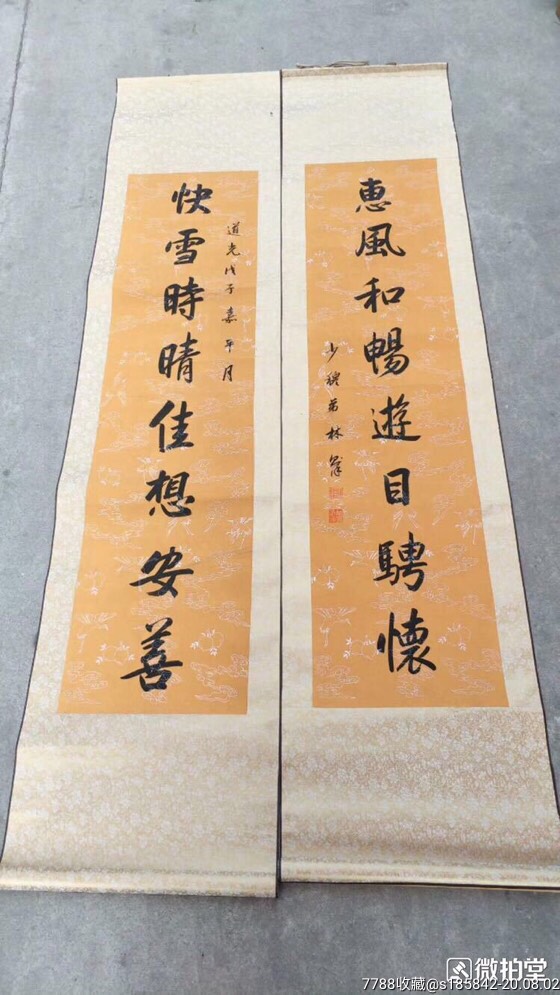 快雪時晴佳想安善
道光戊子嘉平月
惠風和暢遊目騁懷
少穆弟林
微拍堂
7788收藏@s185842-20.08.02